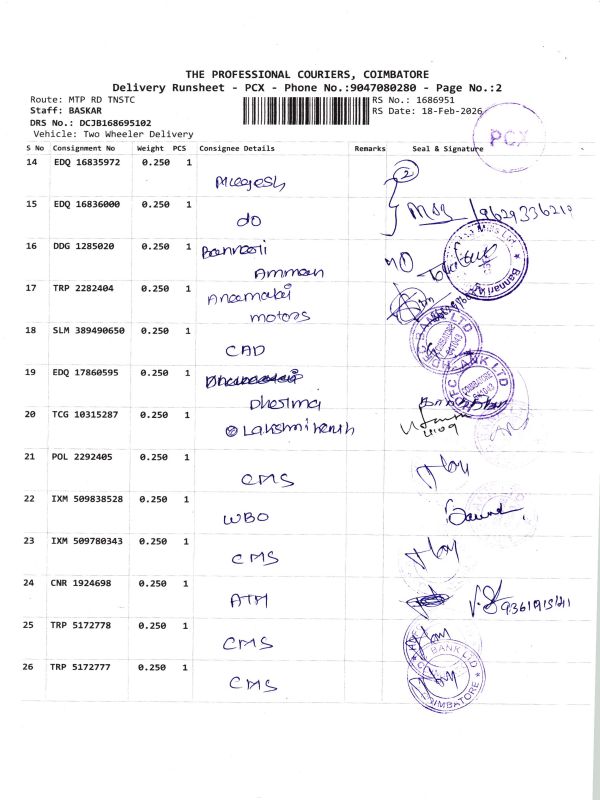 THE PROFESSIONAL COURIERS, COIMBATORE
Delivery Runsheet - PCX - Phone No.:9047080280 - Page No.:2
Route: MTP RD TNSTC
Staff: BASKAR
DRS No.: DCJB168695102
Vehicle: Two Wheeler Delivery
RS No.: 1686951
RS Date: 18-Feb-2026
PCX
S No Consignment No Weight PCS Consignee Details Remarks Seal & Signature
14 EDQ 16835972 0.250 1
2
15 EDQ 16836000 0.250 1 do
16 DDG 1285020 0.250 1 Bannari
Amman
17 TRP 2282404 0.250 1
motors
18 SLM 389490650 0.250 1 CAD
19 EDQ 17860595 0.250 1
20 TCG 10315287 0.250 1
21 POL 2292405 0.250 1 CMS
22 IXM 509838528 0.250 1 WBO
23 IXM 509780343 0.250 1 CMS
24 CNR 1924698 0.250 1 ATM
25 TRP 5172778 0.250 1 CMS
26 TRP 5172777 0.250 1 CMS
BANK LTD
COIMBATORE